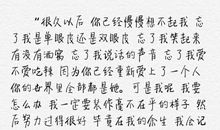 “很久以后 你已经慢慢想不起我 忘
了我是单眼皮还是双眼皮 忘了我笑起来
有没有酒窝 忘了我说话的声音 忘了我爱
不爱吃辣 因为你已经重新爱上了一个人
你的世界里全部都是她。可是我呢 我要
怎么办 我一定要装作毫不在乎的样子 然
后努力过得很好 毕竟在我的余生 我会记